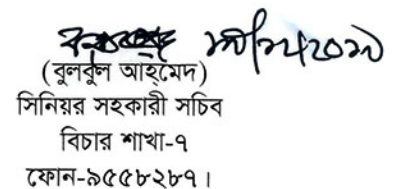 (বুলবুল আহ্‌মেদ)
সিনিয়র সহকারী সচিব
বিচার শাখা-৭
ফোন-৯৫৫৮২৮৭।